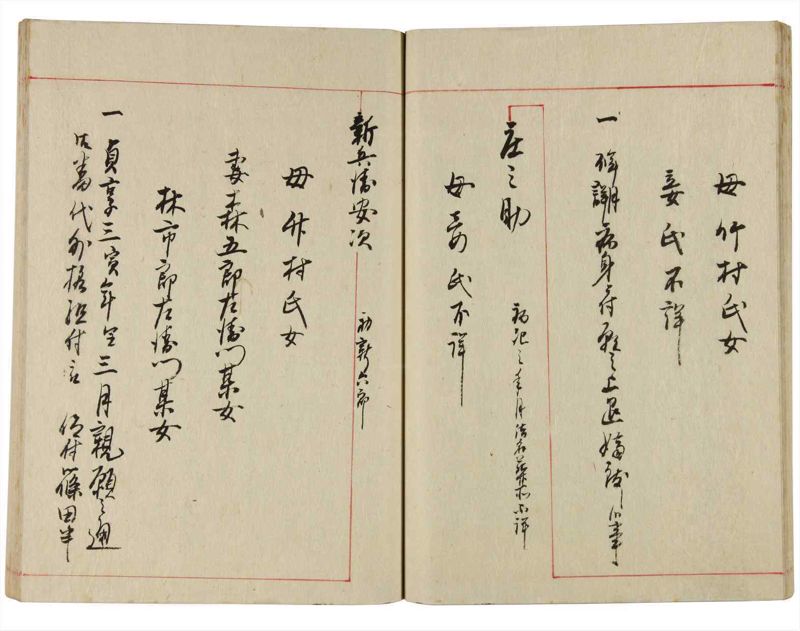 母竹村氏女
妾氏不詳
一 病身ニ付願之上退嫡
庄之助
病死之年月法名葬所不詳
母妾氏不詳
新兵衛安次
初新六郎
母竹村氏女
妻森五郎左衛門某女
林市郎左衛門某女
一 貞享三寅年閏三月親願之通
御番代外様組付 被仰付篠田半